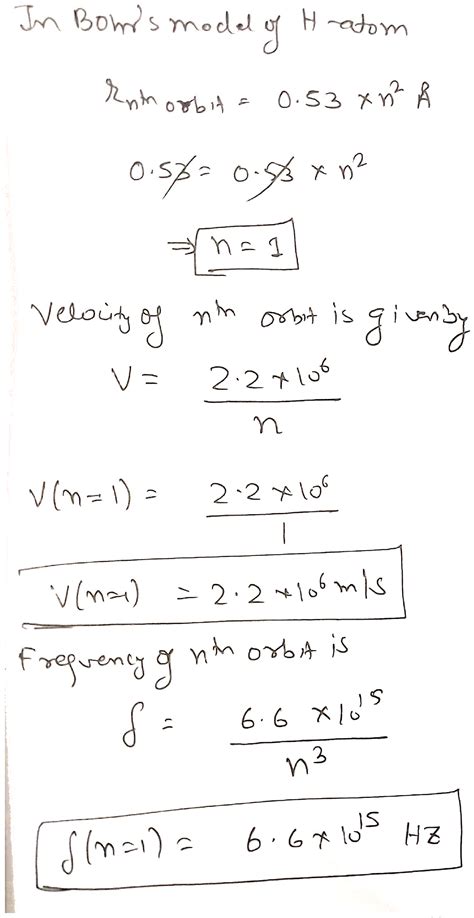 In Bohr's model of H-atom
r nth orbit = 0.53 × n² Å
0.53 = 0.53 × n²
⇒ n = 1
Velocity of nth orbit is given by
V = 2.2 × 10⁶
n
V(n=1) = 2.2 × 10⁶
1
V(n=1) = 2.2 × 10⁶ m/s
Frequency of nth orbit is
f = 6.6 × 10¹⁵
n³
f(n=1) = 6.6 × 10¹⁵ HZ